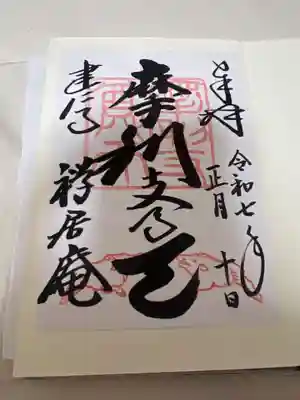 奉拝
令和七年
正月 十日
摩利支尊天
建仁寺
禅居庵